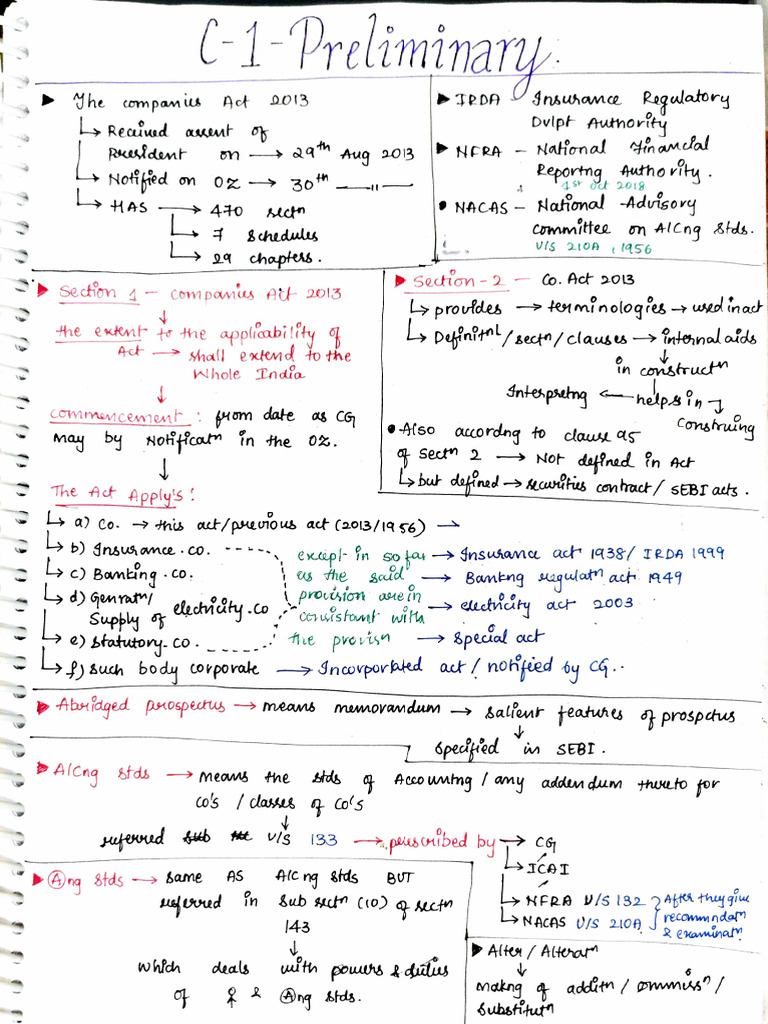 C-1-Preliminary.
▶ The companies Act 2013
↳ Received assent of
President on → 29th Aug 2013
↳ Notified on OZ → 30th —"—
↳ HAS → 470 sectn
↳ 7 schedules
↳ 29 chapters.
▶ IRDA - Insurance Regulatory
Dvlpt Authority
▶ NFRA - National Financial
Reportng Authority.
1st Oct 2018
• NACAS - National Advisory
committee on A/Cng Stds.
U/S 210A, 1956
▶ Section 1 - companies Act 2013
↓
the extent to the applicability of
Act → shall extend to the
Whole India
↓
Commencement : from date as CG
may by Notificatn in the OZ.
↓
The Act Apply's :
▶ Section-2 - Co. Act 2013
↳ provides → terminologies → used in act
↳ Definitnl/sectn/clauses → internal aids
↓
in constructn
Interpretng ← helps in → Construing
• Also accordng to clause 95
of Sectn 2 → Not defined in Act
↳ but defined → securities contract/SEBI acts.
↳ a) Co. → this act/previous act (2013/1956) →
↳ b) Insurance.co.
↳ c) Banking.co.
↳ d) Genratn/
Supply of electricity.co
↳ e) Statutory.co.
↳ f) Such body corporate → Incorportated act / notified by CG..
except in so far
as the said
provision are in
consistant with
the provisn
→ Insurance act 1938/ IRDA 1999
→ Bankng regulatn act 1949
→ electricity act 2003
→ Special act
▶ Abridged prospectus → means memorandum → salient features of prospctus
↓
specified in SEBI.
▶ A/Cng Stds → means the stds of Accountng / any addendum thereto for
Co's / classes of Co's
↓
referred U/S 133 → prescribed by → CG
↳ ICAI
↳ NFRA U/S 132
↳ NACAS U/S 210A
After they give
recommndatn
& examinatn
▶ Ⓐng Stds → same AS A/Cng stds BUT
referred in sub sectn (10) of sectn
143
↓
which deals with powers & duties
of & Ⓐng Stds.
▶ Alter / Alteratn
↓
makng of additn / ommissn /
substitutn